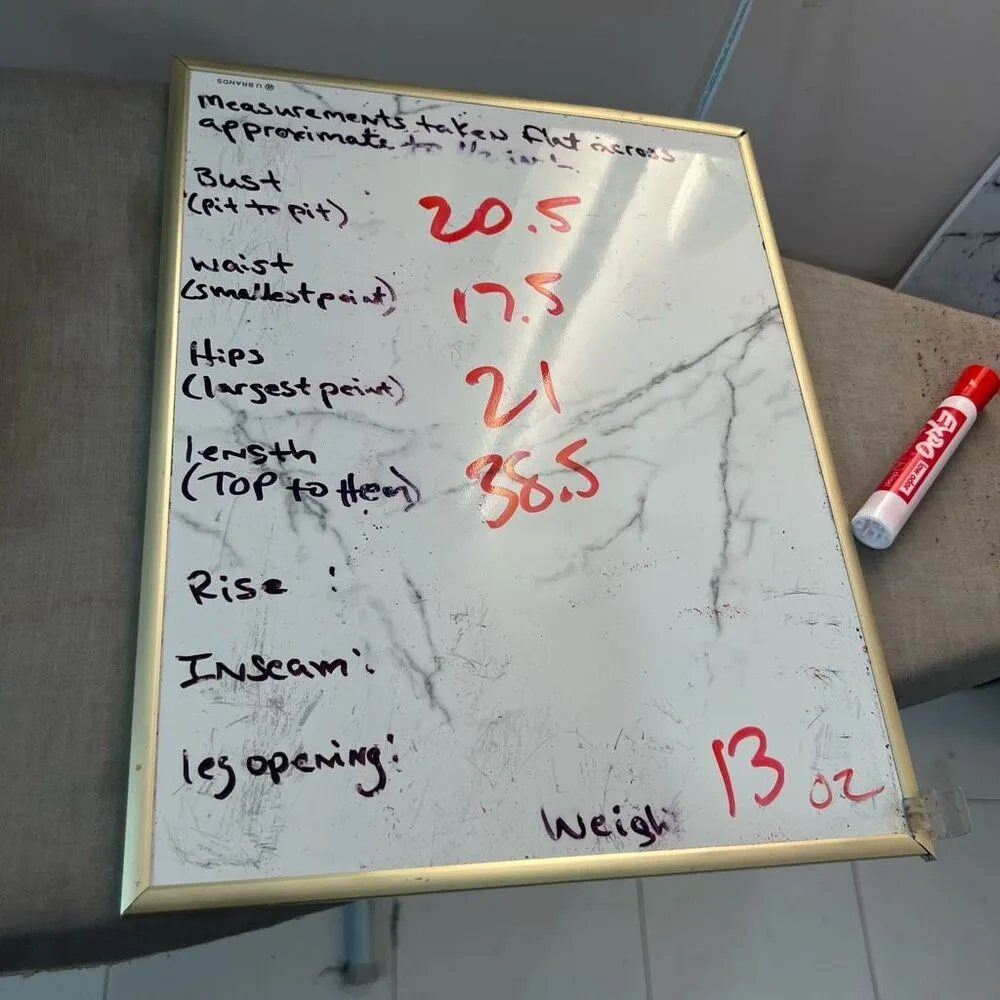 U BRANDS
Measurements taken flat across
approximate to
Bust
(pit to pit) :
20.5
waist
(smallest point)
17.5
Hips
(largest point)
21
length
(TOP to Hem)
38.5
Rise :
Inseam:
leg opening:
13 oz
Weigh
EXPO
low odor